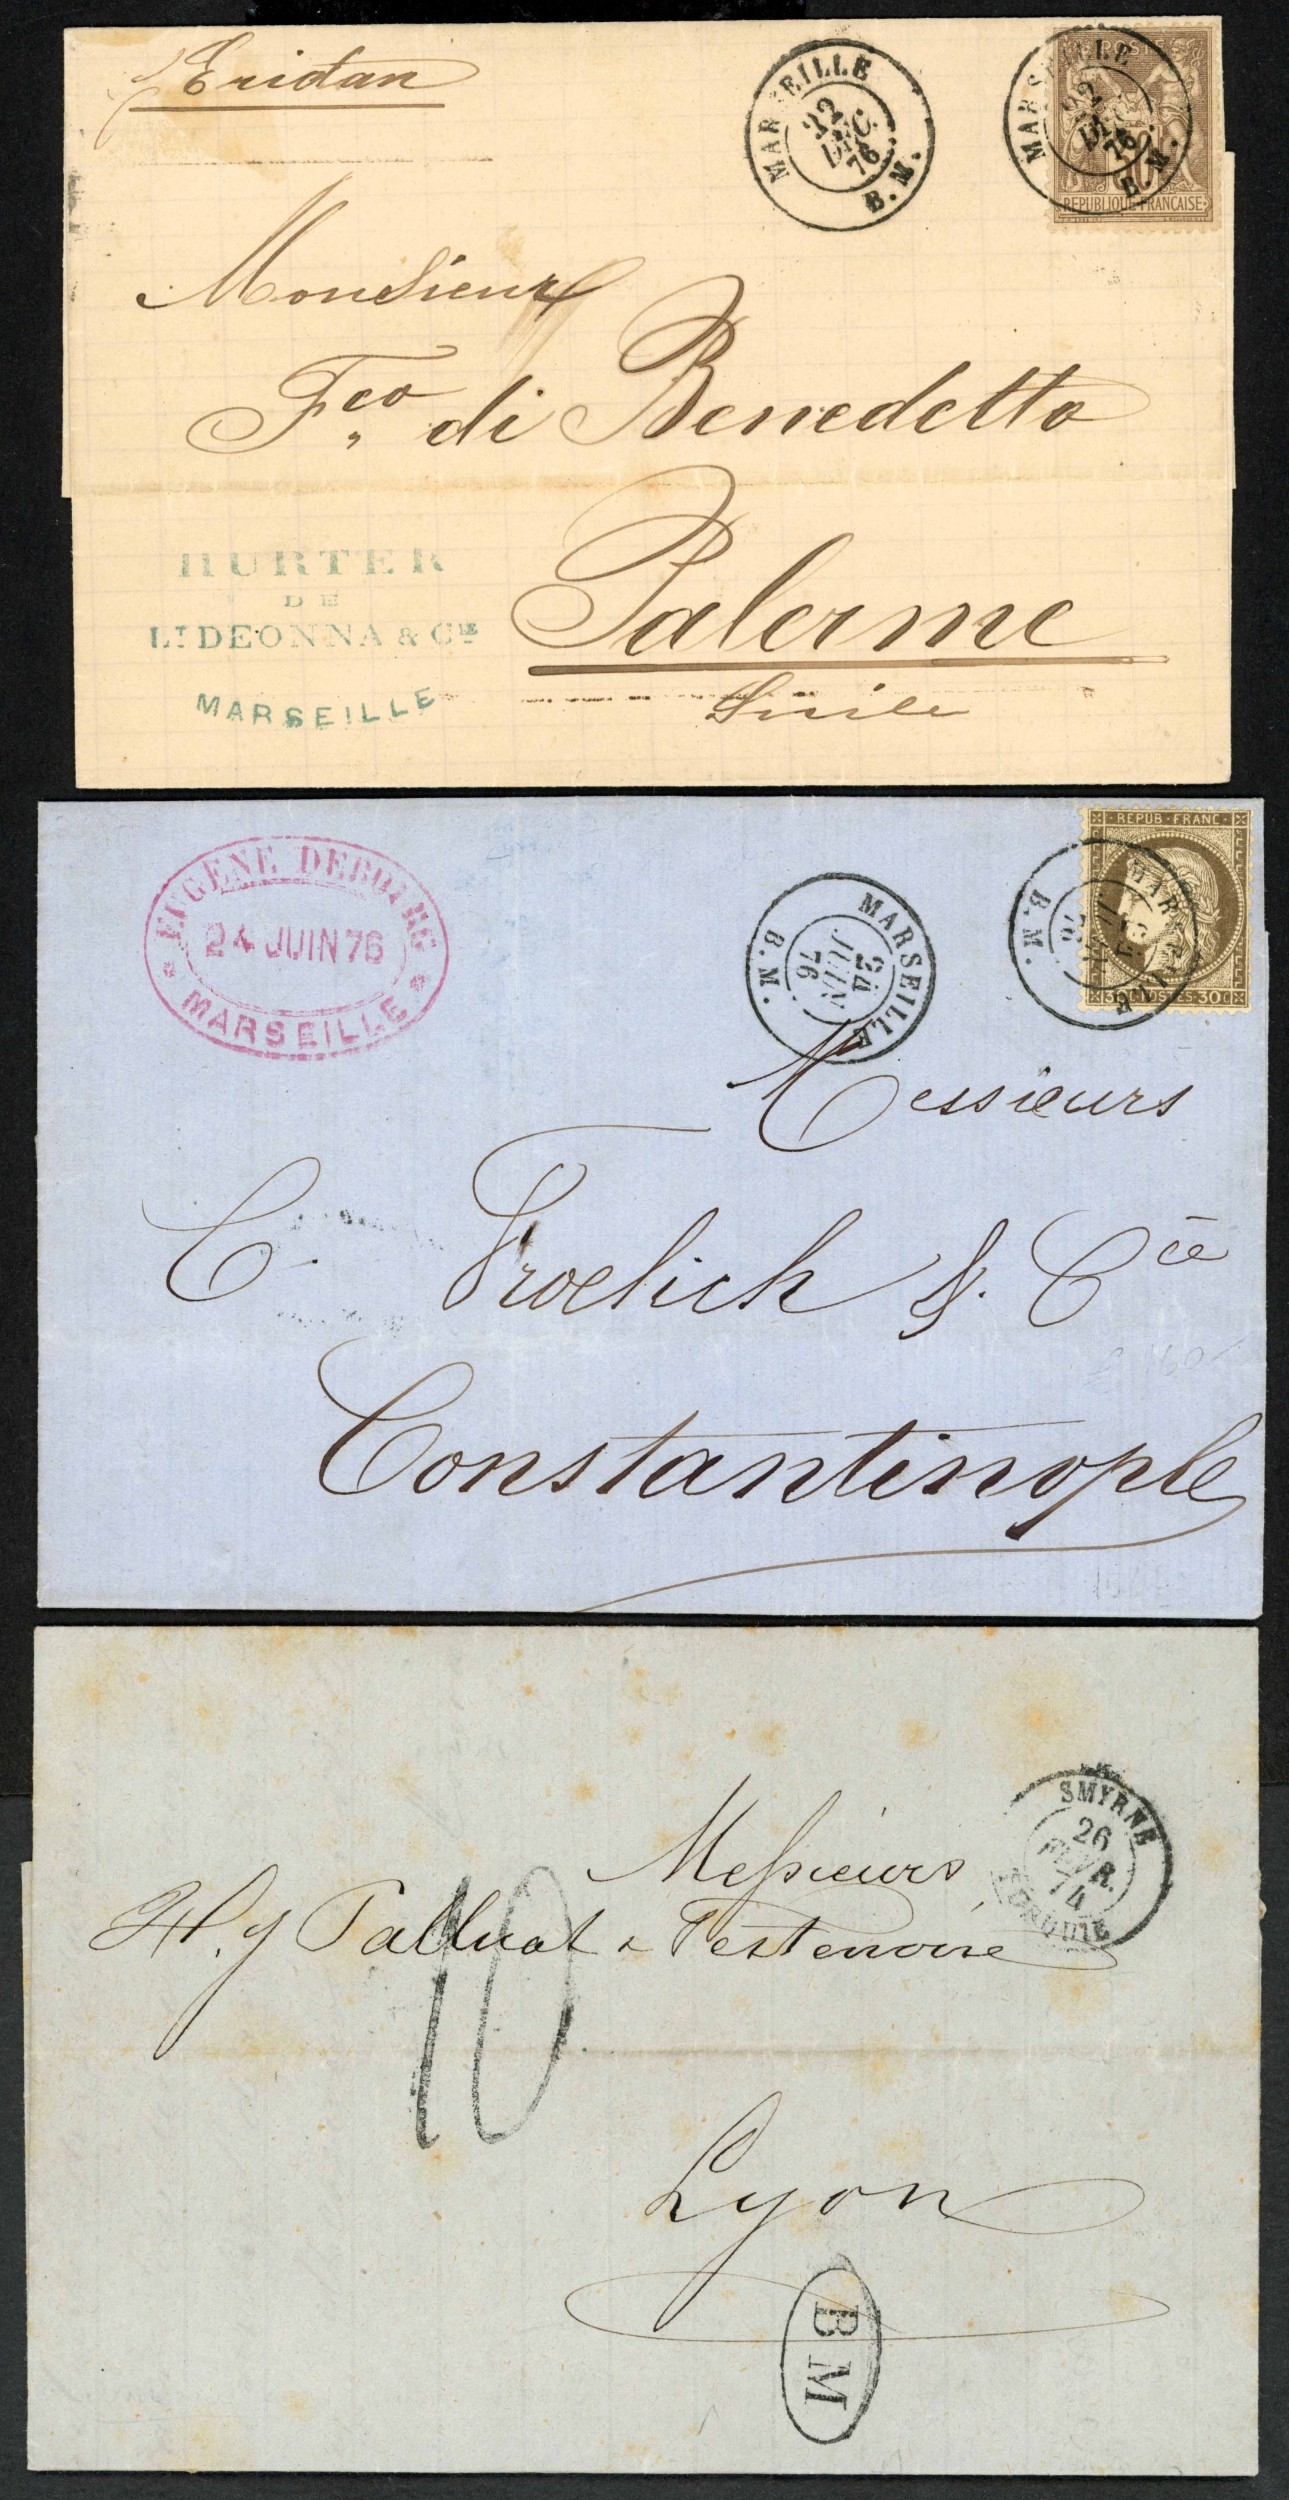 Eridan
MARSEILLE
22
DEC
76
B.M.
MARSEILLE
22
DEC
76
B.M.
REPUBLIQUE FRANÇAISE
Monsieur
Fco. di Benedetto
Palerme
Sicile
HURTER
DE
LT DEONNA & CIE
MARSEILLE
EUGENE DEBOURG
24 JUIN 76
MARSEILLE
MARSEILLE
24
JUIN
76
B.M.
REPUB·FRANC·
MARSEILLE
B.M.
POSTES·30C
Messieurs
C. Froelich & Cie
Constantinople
SMYRNE
26
FEVR.
74
TURQUIE
Messieurs
10
Lyon
BM